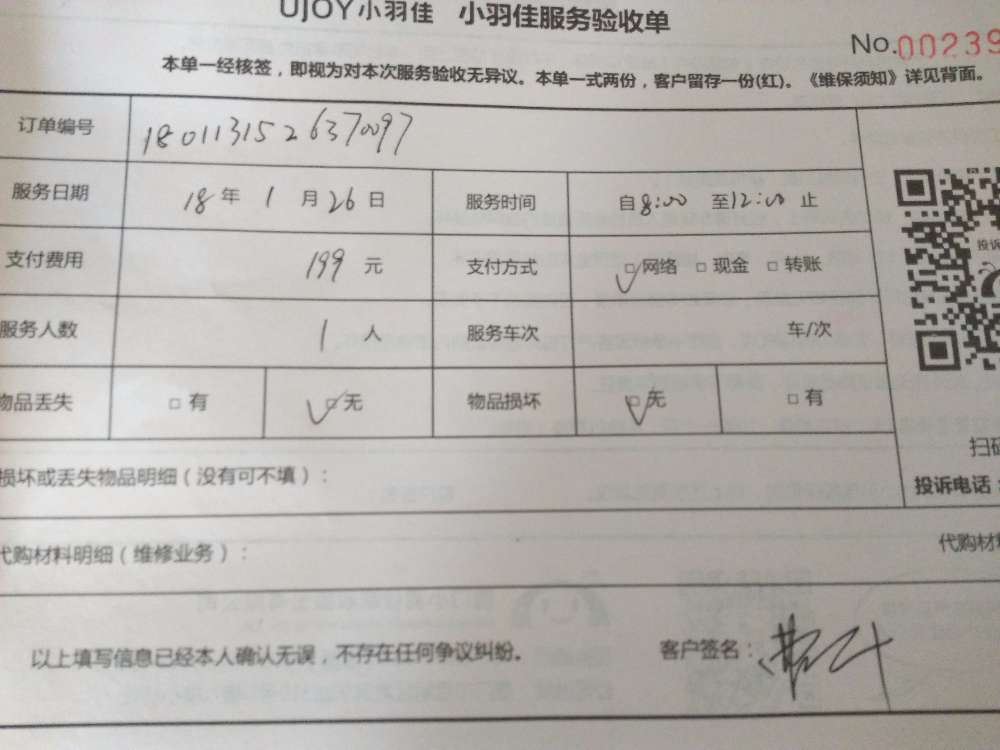 UJOY小羽佳 小羽佳服务验收单
No.00239
本单一经核签，即视为对本次服务验收无异议。本单一式两份，客户留存一份(红)。《维保须知》详见背面。
订单编号 1801131526370097
服务日期 18 年 1 月 26 日 服务时间 自 8:00 至 12:00 止
支付费用 199 元 支付方式 □网络 □现金 □转账
服务人数 1 人 服务车次 车/次
物品丢失 □有 □无 物品损坏 □无 □有
损坏或丢失物品明细（没有可不填）：
投诉
扫码
投诉电话：
代购材料明细（维修业务）：
代购材料
以上填写信息已经本人确认无误，不存在任何争议纠纷。 客户签名：